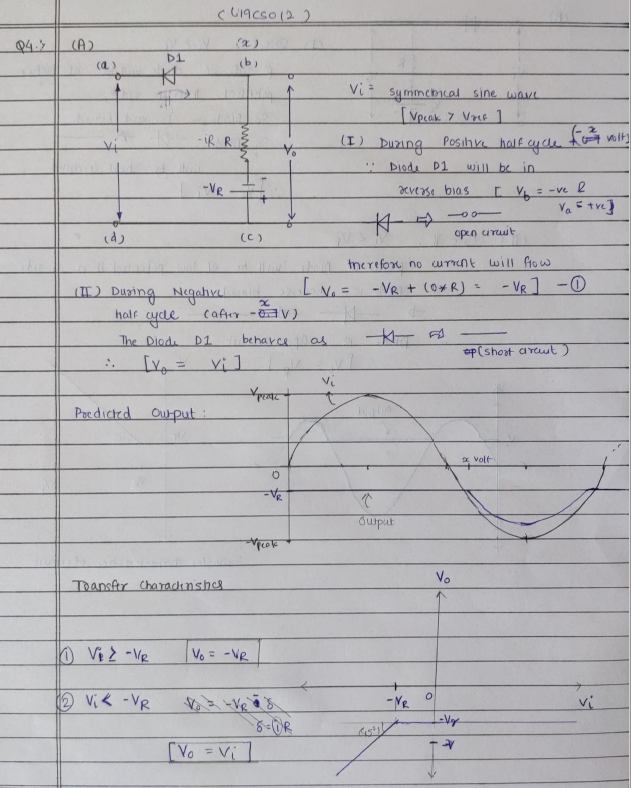 (U19CS012)
Q4.> (A)
(x)
(a) D1 (b)
Vi
iR R
Vo
-VR
-
+
(d) (c)
Vi = symmetrical sine wave
[Vpeak > Vref]
(I) During Positive half cycle (- x volt)
∵ Diode D1 will be in
reverse bias [ Vb = -ve &
Va = +ve]
⇒
open circuit
therefore no current will flow
[ Vo = -VR + (0*R) = -VR ] - ①
(II) During Negative
half cycle (after - x V)
The Diode D1 behaves as
⇒
(short circuit)
∴ [Vo = Vi]
Predicted Output :
Vpeak
Vi
x volt
0
-VR
Output
-Vpeak
Transfer Characteristics
Vo
① Vi ≥ -VR Vo = -VR
② Vi < -VR Vo = -VR
[Vo = Vi]
-VR 0 Vi
45°